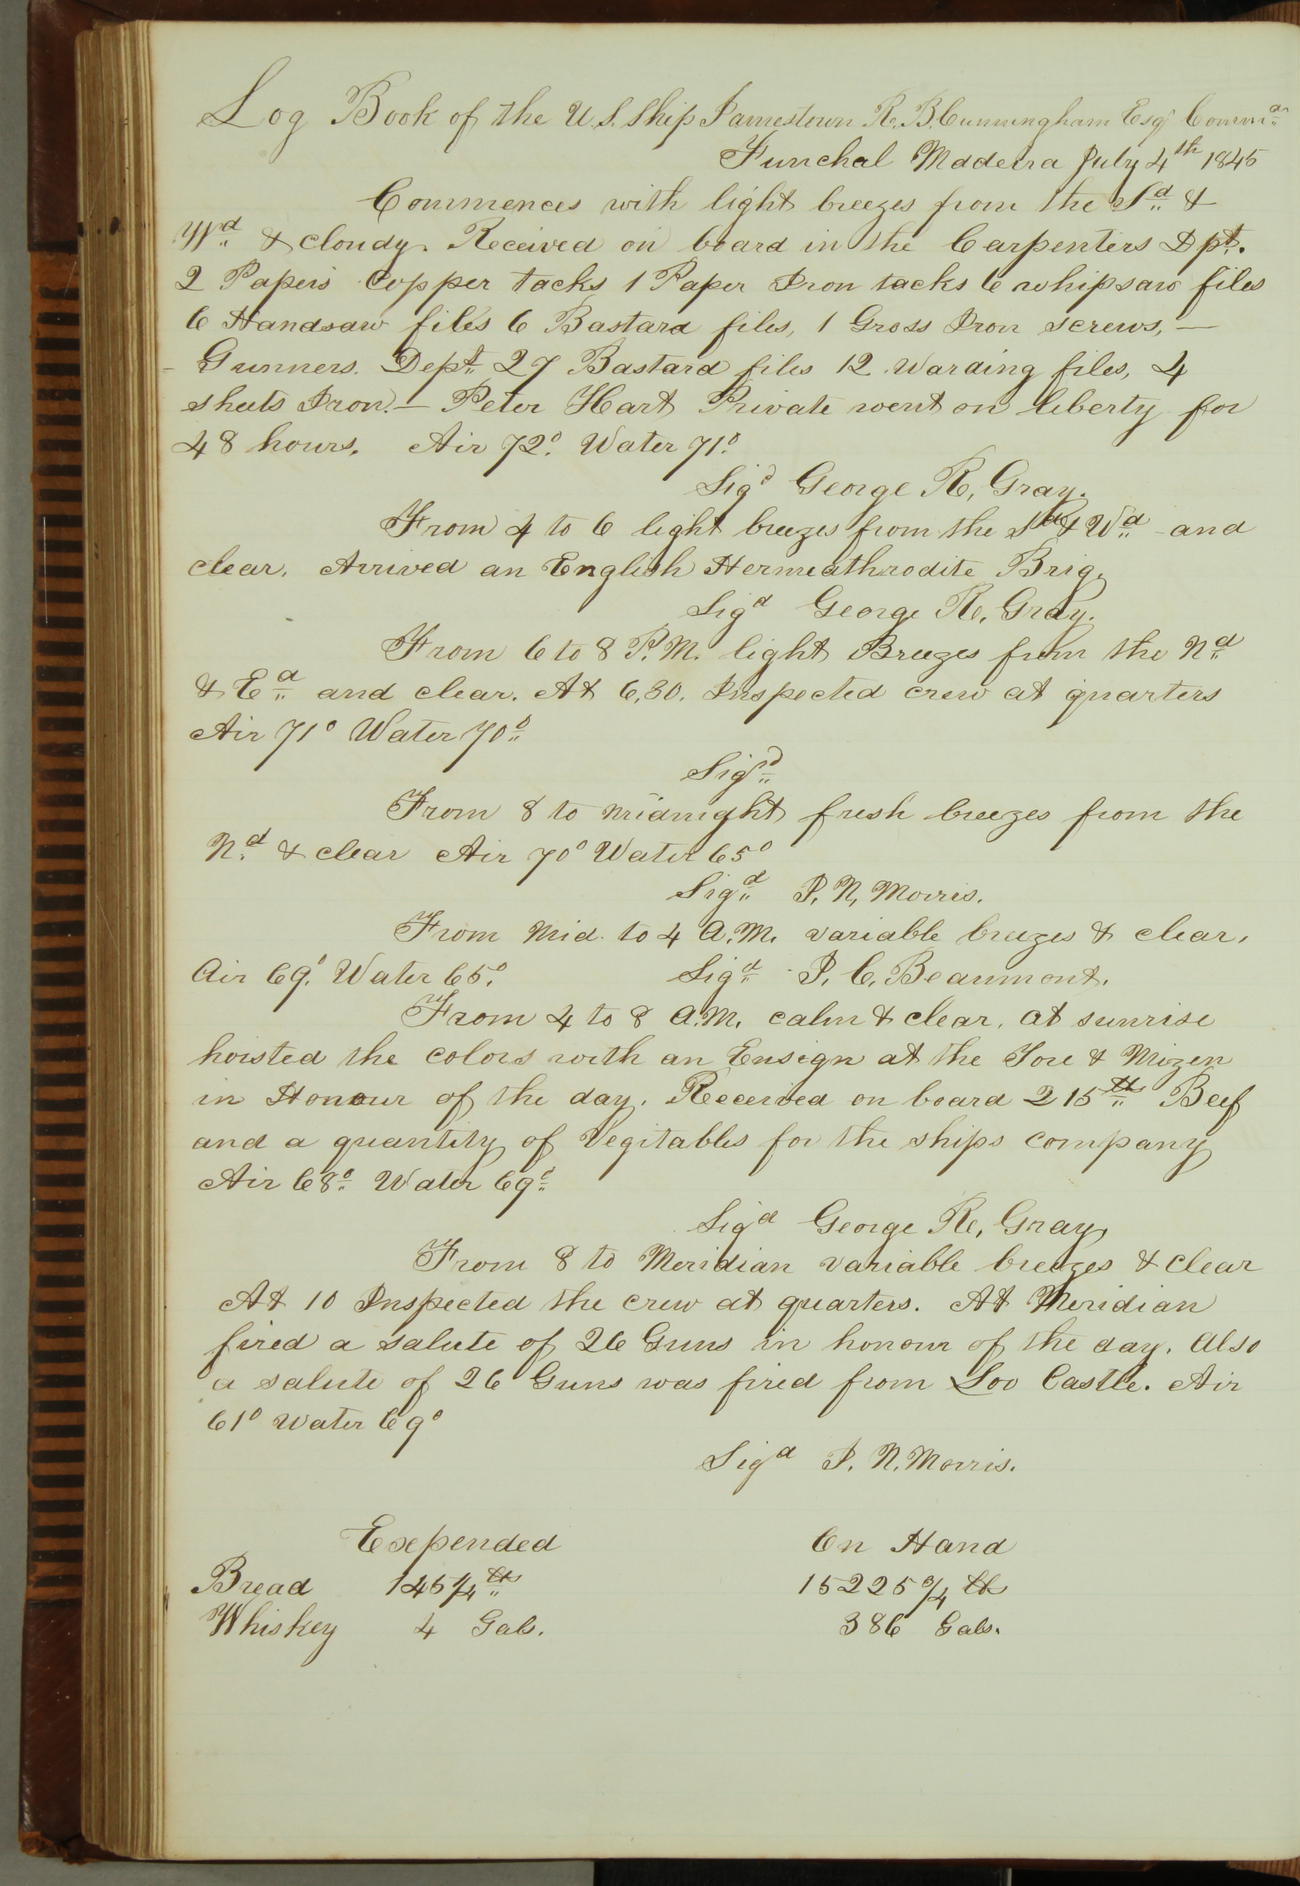 Log Book of the U.S. Ship Jamestown R. B. Cunningham Esqr Commdr
Funchal Madeira July 4th 1845
Commences with light breezes from the Sd &
Wd & cloudy. Received on board in the Carpenters Dpt.
2 Papers Copper tacks 1 Paper Iron tacks 6 whipsaw files
6 Handsaw files 6 Bastard files, 1 Gross Iron screws, —
Gunners. Dept 27 Bastard files 12 Warding files, 4
sheets Iron. — Peter Hart Private went on liberty for
48 hours. Air 72° Water 71°
Sigd George R. Gray.
From 4 to 6 light breezes from the Sd & Wd and
clear. Arrived an English Hermeathrodite Brig.
Sigd George R. Gray.
From 6 to 8 P.M. light Breezes from the Nd
& Ed and clear. At 6.30. Inspected crew at quarters
Air 71° Water 70°
Sigd
From 8 to midnight fresh breezes from the
Nd & clear Air 70° Water 65°
Sigd I. N. Morris.
From Mid. to 4 A.M. variable breezes & clear.
Air 69° Water 65° Sigd I. C. Beaumont.
From 4 to 8 A.M. calm & clear. At sunrise
hoisted the colors with an Ensign at the Fore & Mizen
in Honour of the day. Received on board 215 lb Beef
and a quantity of Vegitables for the ships company
Air 68° Water 69°
Sigd George R. Gray
From 8 to Meridian variable breezes & clear
At 10 Inspected the crew at quarters. At Meridian
fired a salute of 26 Guns in honour of the day. Also
a salute of 26 Guns was fired from Loo Castle. Air
61° Water 69°
Sigd I. N. Morris.
Expended On Hand
Bread lb 15225 lb
Whiskey 4 Gals. 386 Gals.